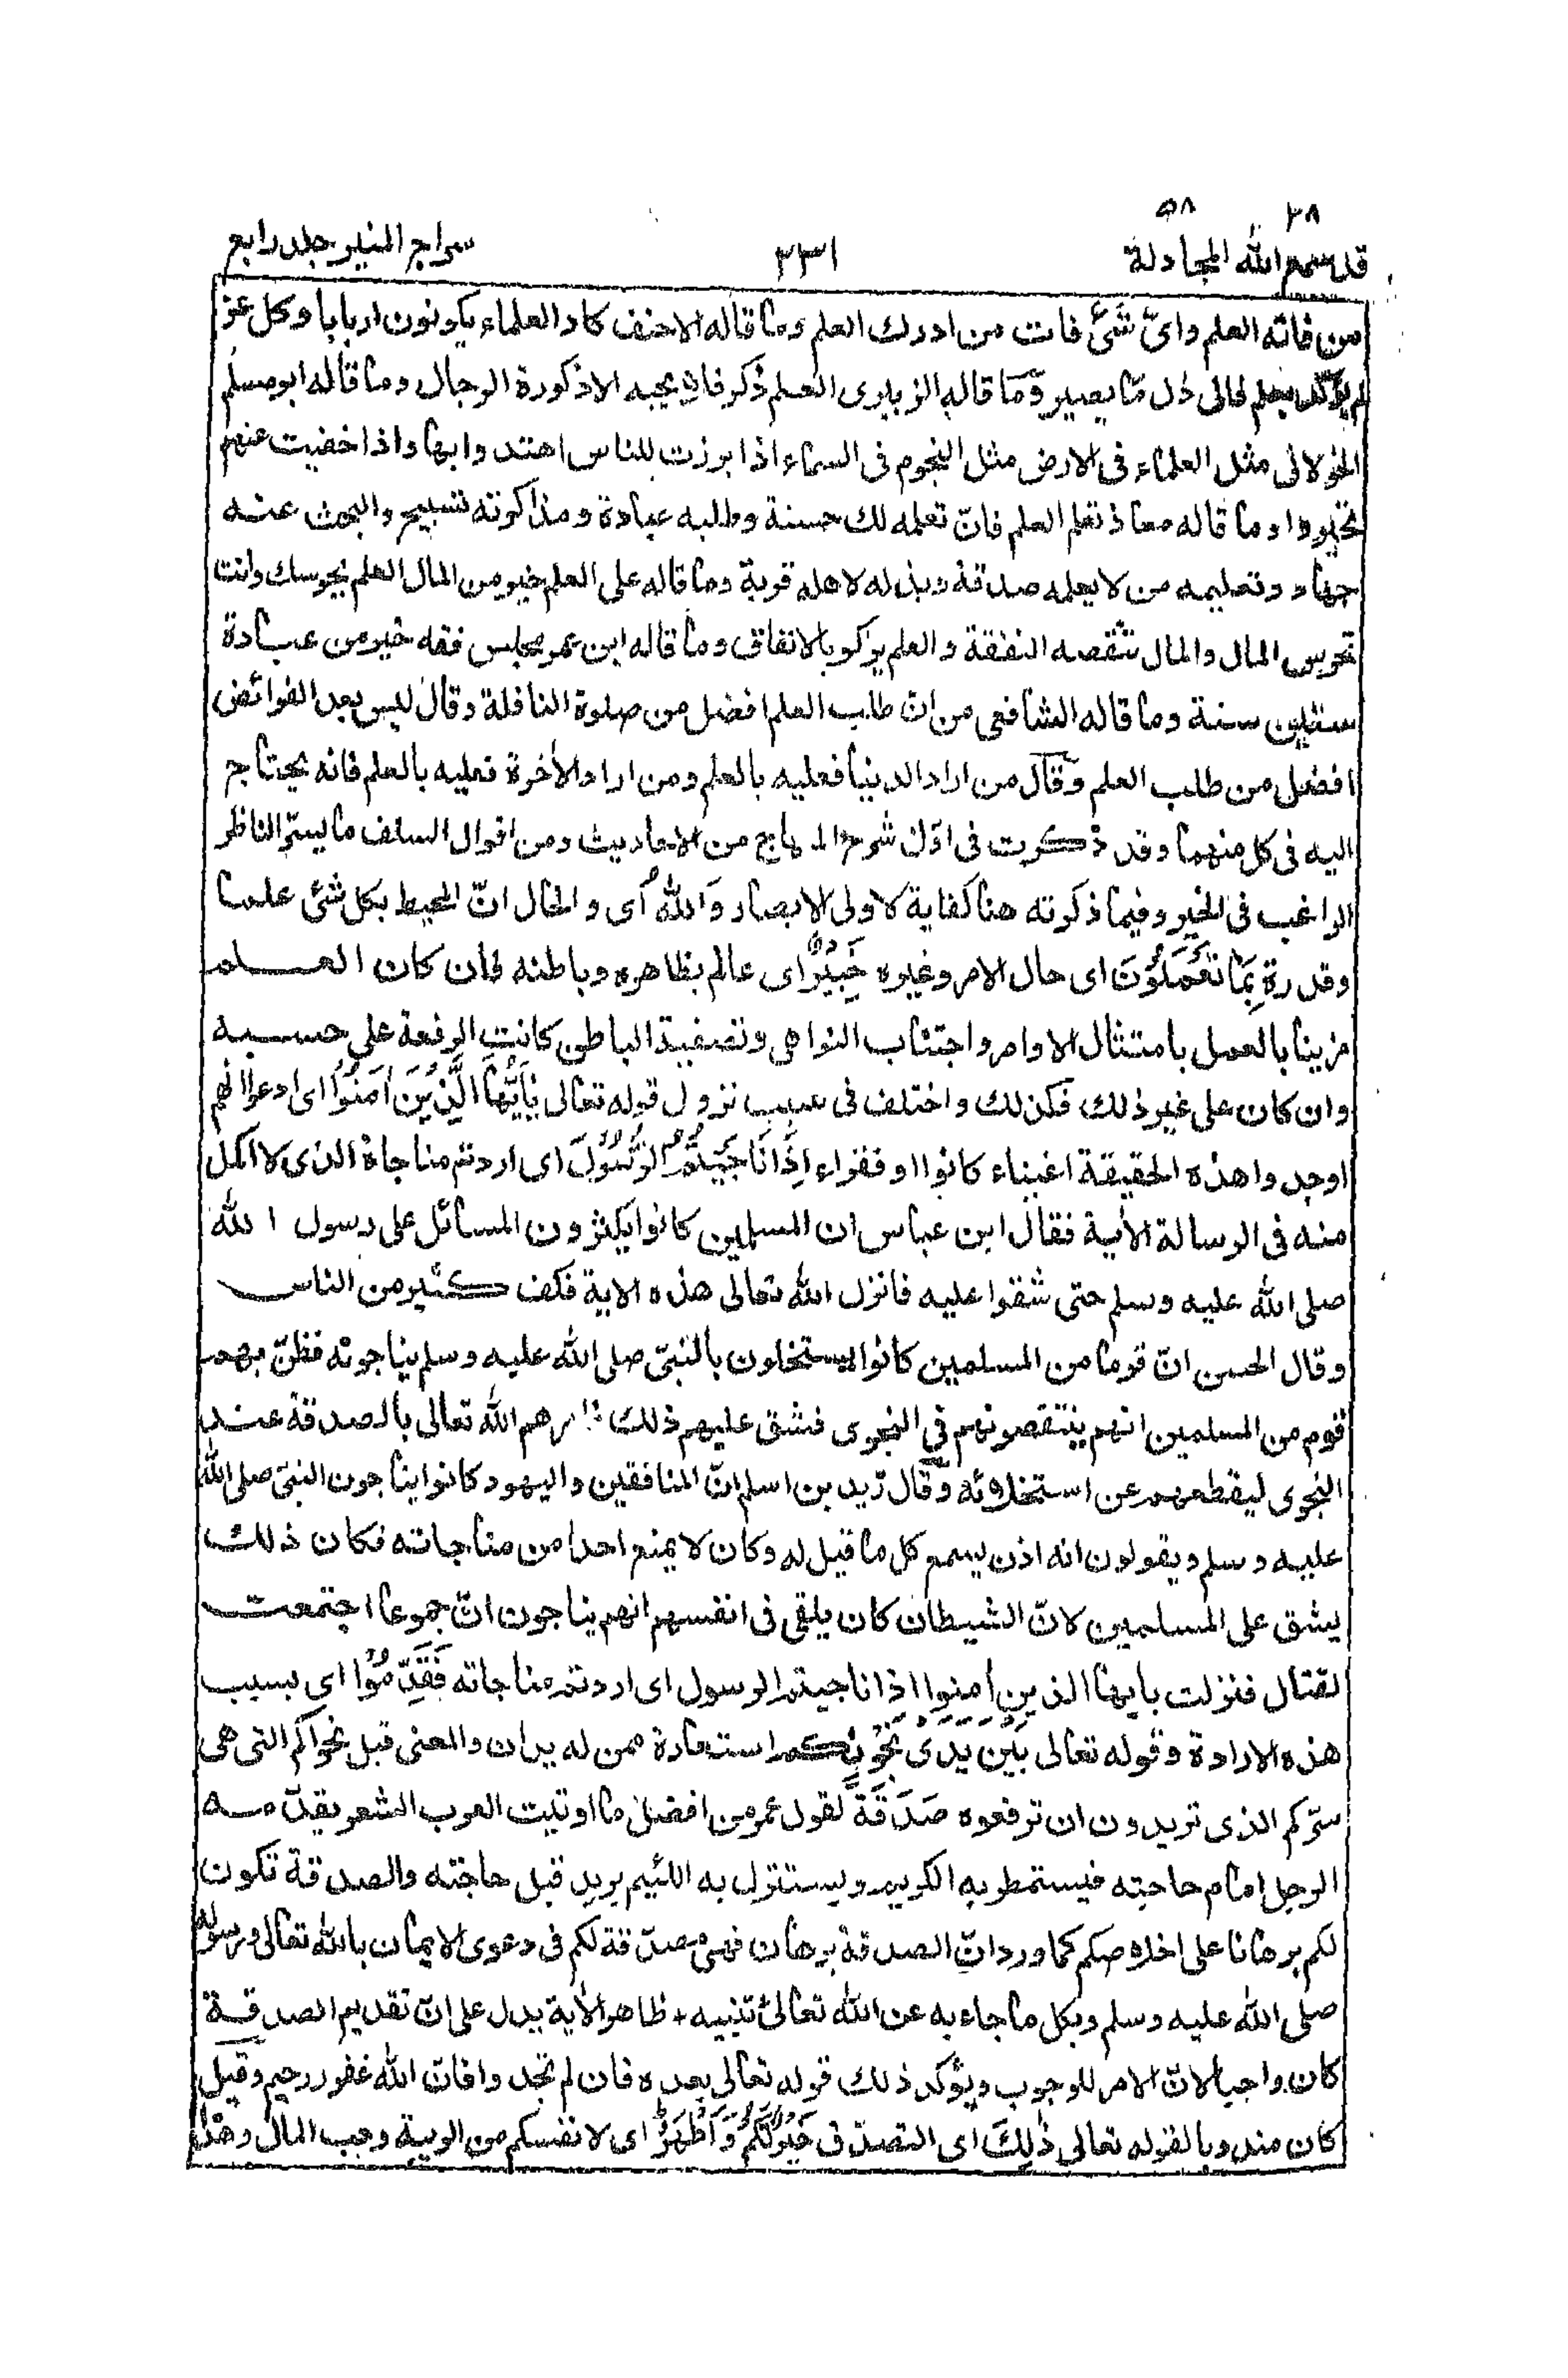 ٢٨ ٥٨
قد سمع الله المجادلة ٢٣١ سراج المنير جلد رابع
من فاته العلم وایّ شئ فات من ادرك العلم وما قاله الاحنف كاد العلماء يكونون اربابا وكل عز
لم يؤكد بعلم فالى ذل مّا يصير وما قاله الزبيرى العلم ذكر فلا يحبه الا ذكورة الرجال وما قاله ابو مسلم
الخولانى مثل العلماء فى الارض مثل النجوم فى السماء اذا برزت للناس اهتدوا بها واذا خفيت عنهم
تحيروا وما قاله معاذ تعلم العلم فانّ تعلمه لك حسنة وطلبه عبادة ومذاكرته تسبيح والبحث عنه
جهاد وتعليمه من لا يعلمه صدقة وبذله لاهله قربة وما قاله على العلم خير من المال العلم يحرسك وانت
تحرس المال والمال تنقصه النفقة والعلم يزكو بالانفاق وما قاله ابن عمر مجلس فقه خير من عبادة
ستين سنة وما قاله الشافعى من انّ طلب العلم افضل من صلوة النافلة وقال ليس بعد الفرائض
افضل من طلب العلم وقال من اراد الدنيا فعليه بالعلم ومن اراد الأخرة فعليه بالعلم فانه يحتاج
اليه فى كل منهما وقد ذكرت فى اوّل شرح المنهاج من الاحاديث ومن اقوال السلف ما يسرّ الناظر
الراغب فى الخير وفيما ذكرته هنا كفاية لاولى الابصار وَاللهُ اى والحال انّ المحيط بكل شئ علما
وقدرة بِمَا تَعْمَلُوْنَ اى حال الامر وغيره خَبِيْرٌ اى عالم بظاهره وباطنه فان كان العلم
مزينا بالعمل بامتثال الاوامر واجتناب النواهى وتصفية الباطن كانت الرفعة على حسبه
وان كان على غير ذلك فكذلك واختلف فى سبب نزول قوله تعالى يٰاَيُّهَا الَّذِيْنَ اٰمَنُوْا اى ادعوا انهم
اوجدوا هذه الحقيقة اغنياء كانوا او فقراء اِذَا نَاجَيْتُمُ الرَّسُوْلَ اى اردتم مناجاة الذى لا اكمل
منه فى الرسالة الأية فقال ابن عباس ان المسلمين كانوا يكثرون المسائل على رسول الله
صلى الله عليه وسلم حتى شقوا عليه فانزل الله تعالى هذه الاية فكف كثير من الناس
وقال الحسن انّ قوما من المسلمين كانوا يستخلون بالنبىّ صلى الله عليه وسلم يناجونه فظنّ بهم
قوم من المسلمين انهم ينتقصونهم فى النجوى فشق عليهم ذلك فامرهم الله تعالى بالصدقة عند
النجوى ليقطعهم عن استخلائه وقال زيد بن اسلم انّ المنافقين واليهود كانوا يناجون النبىّ صلى الله
عليه وسلم ويقولون انه اذن يسمع كل ما قيل له وكان لا يمنع احدا من مناجاته فكان ذلك
يشق على المسلمين لانّ الشيطان كان يلقى فى انفسهم انهم يناجون انّ جموعا اجتمعت
لقتال فنزلت يايها الذين أمنوا اذا ناجيتم الرسول اى اردتم مناجاته فَقَدِّمُوْا اى بسبب
هذه الارادة وقوله تعالى بَيْنَ يَدَىْ نَجْوٰىكُمْ استعارة ممن له يدان والمعنى قبل نجواكم التى هى
سرّكم الذى تريدون ان ترفعوه صَدَقَةً لقول عمر من افضل ما اوتيت العرب الشعر يقدّمه
الرجل امام حاجته فيستمطر به الكريم ويستنزل به اللئيم يريد قبل حاجته والصدقة تكون
لكم برهانا على اخلاصكم كما ورد انّ الصدقة برهان فهى مصدّقة لكم فى دعوى الايمان بالله تعالى ورسوله
صلى الله عليه وسلم وبكل ما جاء به عن الله تعالى تنبيه + ظاهر الأية يدل على انّ تقديم الصدقة
كان واجبا لانّ الامر للوجوب ويؤكد ذلك قوله تعالى بعده فان لم تجدوا فانّ الله غفور رحيم وقيل
كان مندوبا لقوله تعالى ذٰلِكَ اى التصدّق خَيْرٌ لَّكُمْ وَاَطْهَرُ اى لانفسكم من الريبة وحب المال وهذا